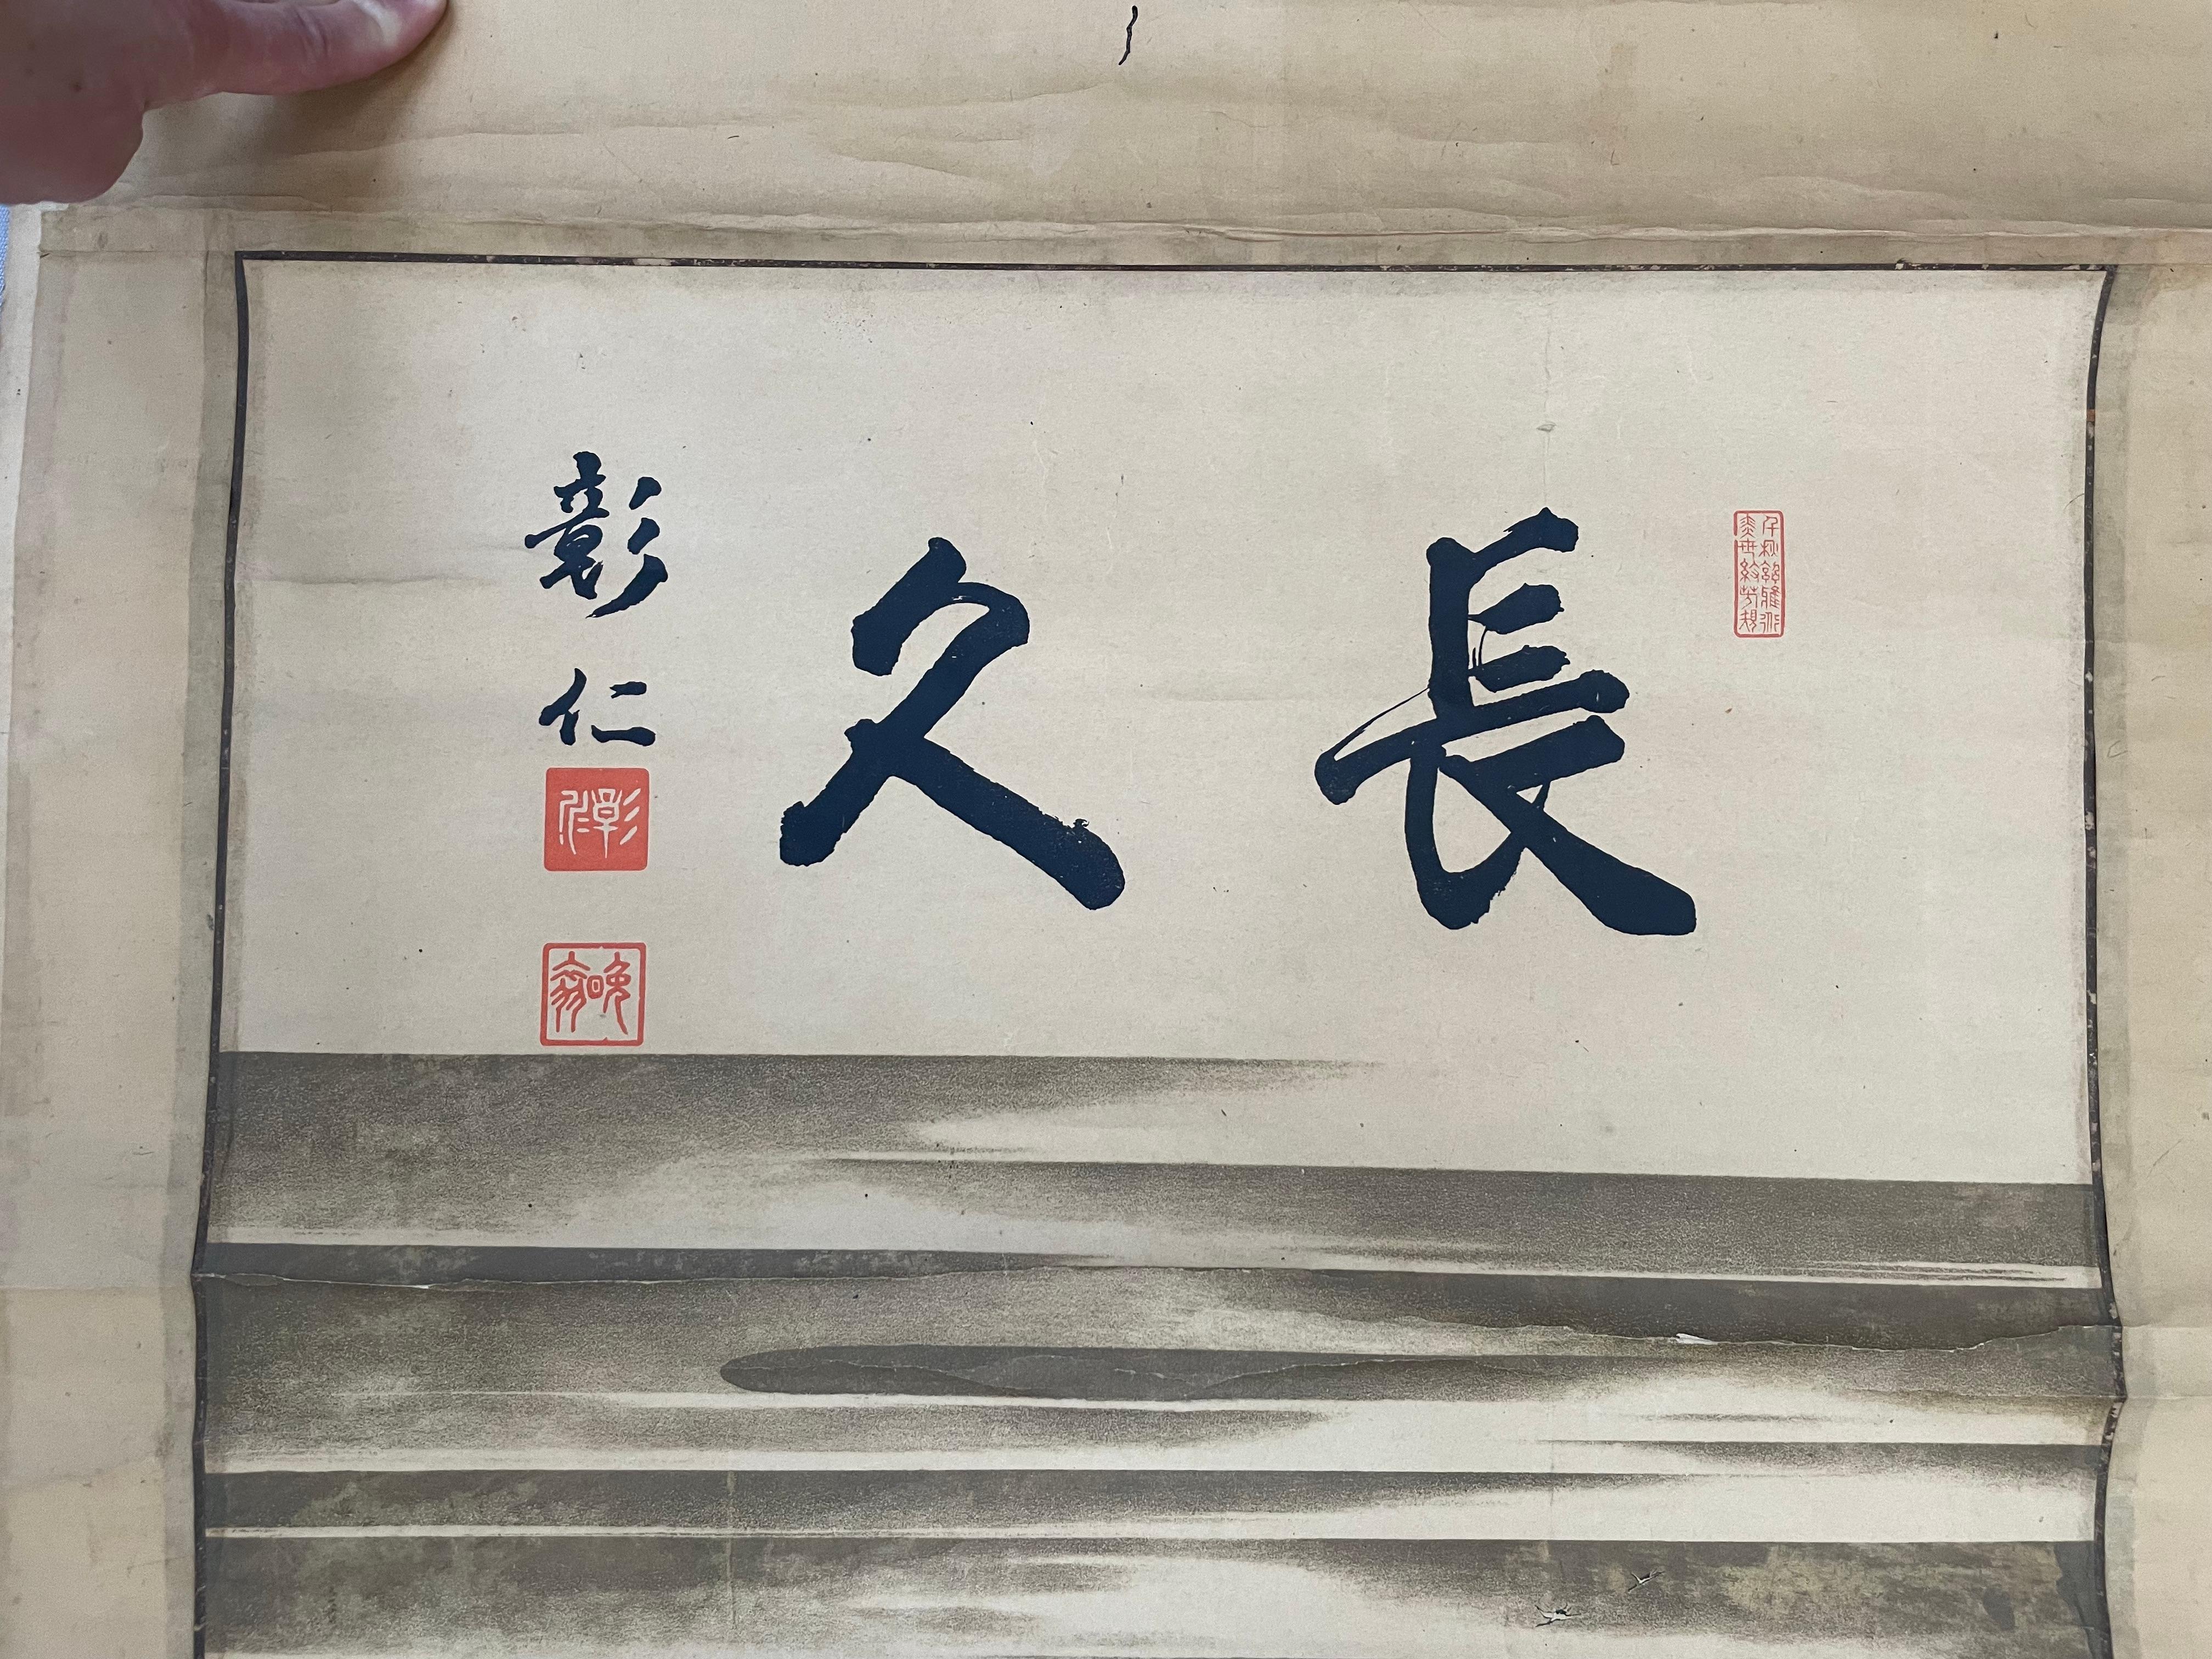 長久
彰仁
彰仁
晩翠